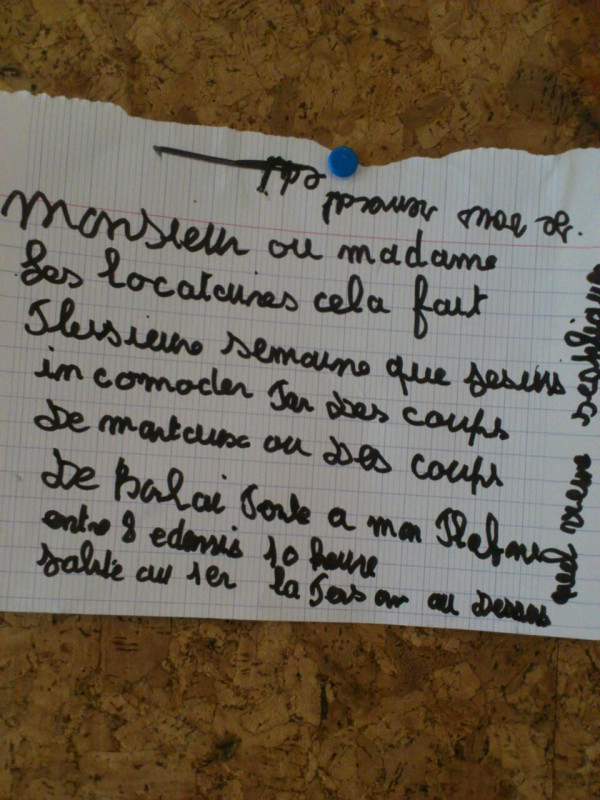 Monsieur ou madame
Les locataires cela fait
Plusieure semaine que jesuis
in comoder Par Des coups
De marteux ou Des coups
De Balai Porte a mon Plafond
entre 8 edemis 10 heure
jabite au 1er la Person au Dessus
qes viene sexpliquer
je vous remerci